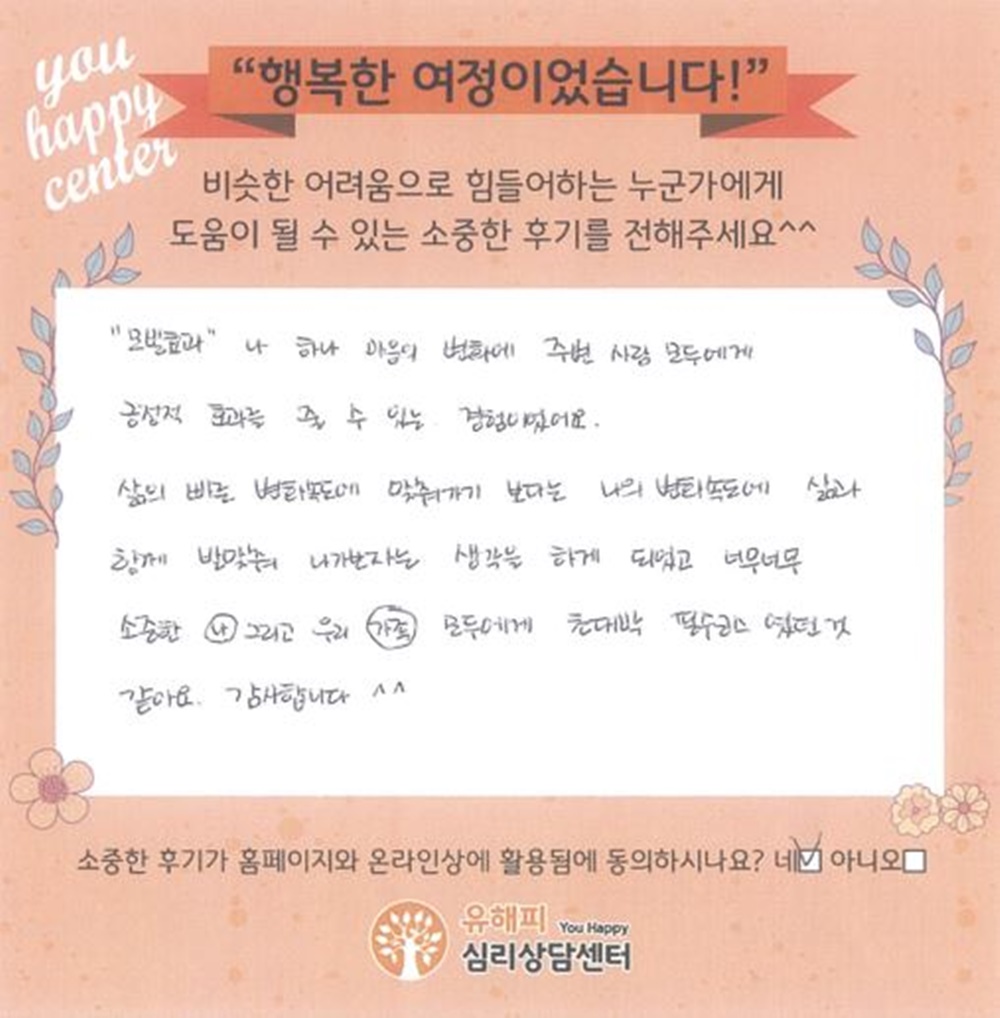 you
happy
center
“행복한 여정이었습니다!”
비슷한 어려움으로 힘들어하는 누군가에게
도움이 될 수 있는 소중한 후기를 전해주세요^^
"모빌효과" 나 하나 마음의 변화에 주변 사람 모두에게
긍정적 효과를 줄 수 있는 경험이었어요.
삶의 빠른 변화속도에 맞춰가기 보다는 나의 변화속도에 삶과
함께 발맞춰 나가보자는 생각을 하게 되었고 너무너무
소중한 나 그리고 우리 가족 모두에게 초대박 필수코스 였던 것
같아요. 감사합니다 ^^
소중한 후기가 홈페이지와 온라인상에 활용됨에 동의하시나요? 네☑ 아니오☐
유해피 You Happy
심리상담센터